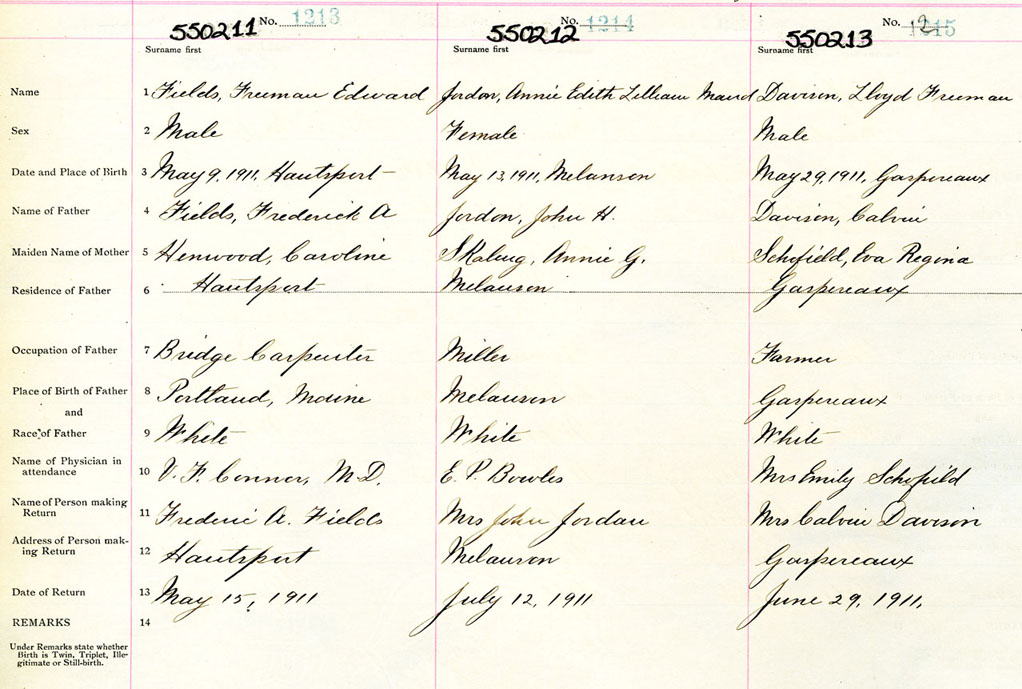 No. 1213 No. 1214 No. 1215
550211 550212 550213
Surname first Surname first Surname first
Name 1 Fields, Freeman Edward Jordon, Annie Edith Lilliam Maud Davison, Lloyd Freeman
Sex 2 Male Female Male
Date and Place of Birth 3 May 9, 1911, Hantsport May 13, 1911, Melanson May 29, 1911, Gaspereaux
Name of Father 4 Fields, Frederick A Jordon, John H. Davison, Calvin
Maiden Name of Mother 5 Henwood, Caroline Skaling, Annie G. Schofield, Eva Regina
Residence of Father 6 Hantsport Melanson Gaspereaux
Occupation of Father 7 Bridge Carpenter Miller Farmer
Place of Birth of Father 8 Portland, Maine Melanson Gaspereaux
and
Race of Father 9 White White White
Name of Physician in
attendance 10 V. F. Connor, M.D. E. P. Bowles Mrs Emily Schofield
Name of Person making
Return 11 Frederic A. Fields Mrs John Jordan Mrs Calvin Davison
Address of Person mak-
ing Return 12 Hantsport Melanson Gaspereaux
Date of Return 13 May 15, 1911 July 12, 1911 June 29, 1911.
REMARKS 14
Under Remarks state whether
Birth is Twin, Triplet, Ille-
gitimate or Still-birth.